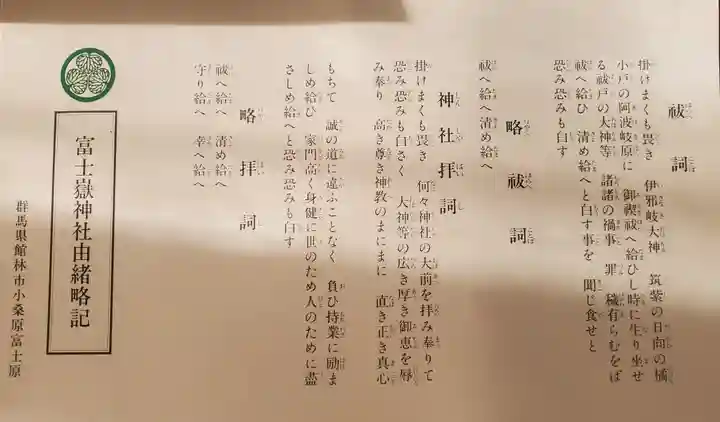 祓詞
掛けまくも畏き 伊邪岐大神 筑紫の日向の橘
小戸の阿波岐原に 御禊祓へ給ひし時に生り坐せ
る祓戸の大神等 諸諸の禍事 罪 穢有らむをば
祓へ給ひ 清め給へと白す事を 聞し食せと
恐み恐みも白す
略祓詞
祓へ給へ清め給へ
神社拝詞
掛けまくも畏き 何々神社の大前を拝み奉りて
恐み恐みも白さく 大神等の広き厚き御恵を辱
み奉り 高き尊き神教のまにまに 直き正き真心
もちて 誠の道に違ふことなく 負ひ持業に励ま
しめ給ひ 家門高く身健に世のため人のために盡
さしめ給へと恐み恐みも白す
略拝詞
祓へ給へ 清め給へ
守り給へ 幸へ給へ
富士嶽神社由緒略記
群馬県館林市小桑原富士原